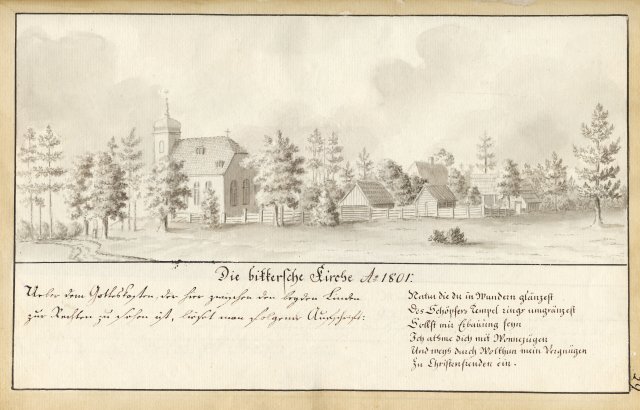 Die bikkersche Kirche Ao 1801.
Ueber dem Gotteskasten, der hier zwischen den beyden Linden
zur Rechten zu sehen ist, lieset man folgende Aufschrift:
Natur die du in Wundern glänzest
Des Schöpfers Tempel rings umgränzest
Sollst mir Erbauung seyn
Ich athme dich mit Wonnezügen
Und weyh durch Wolthun mein Vergnügen
Zu Christenfreuden ein.